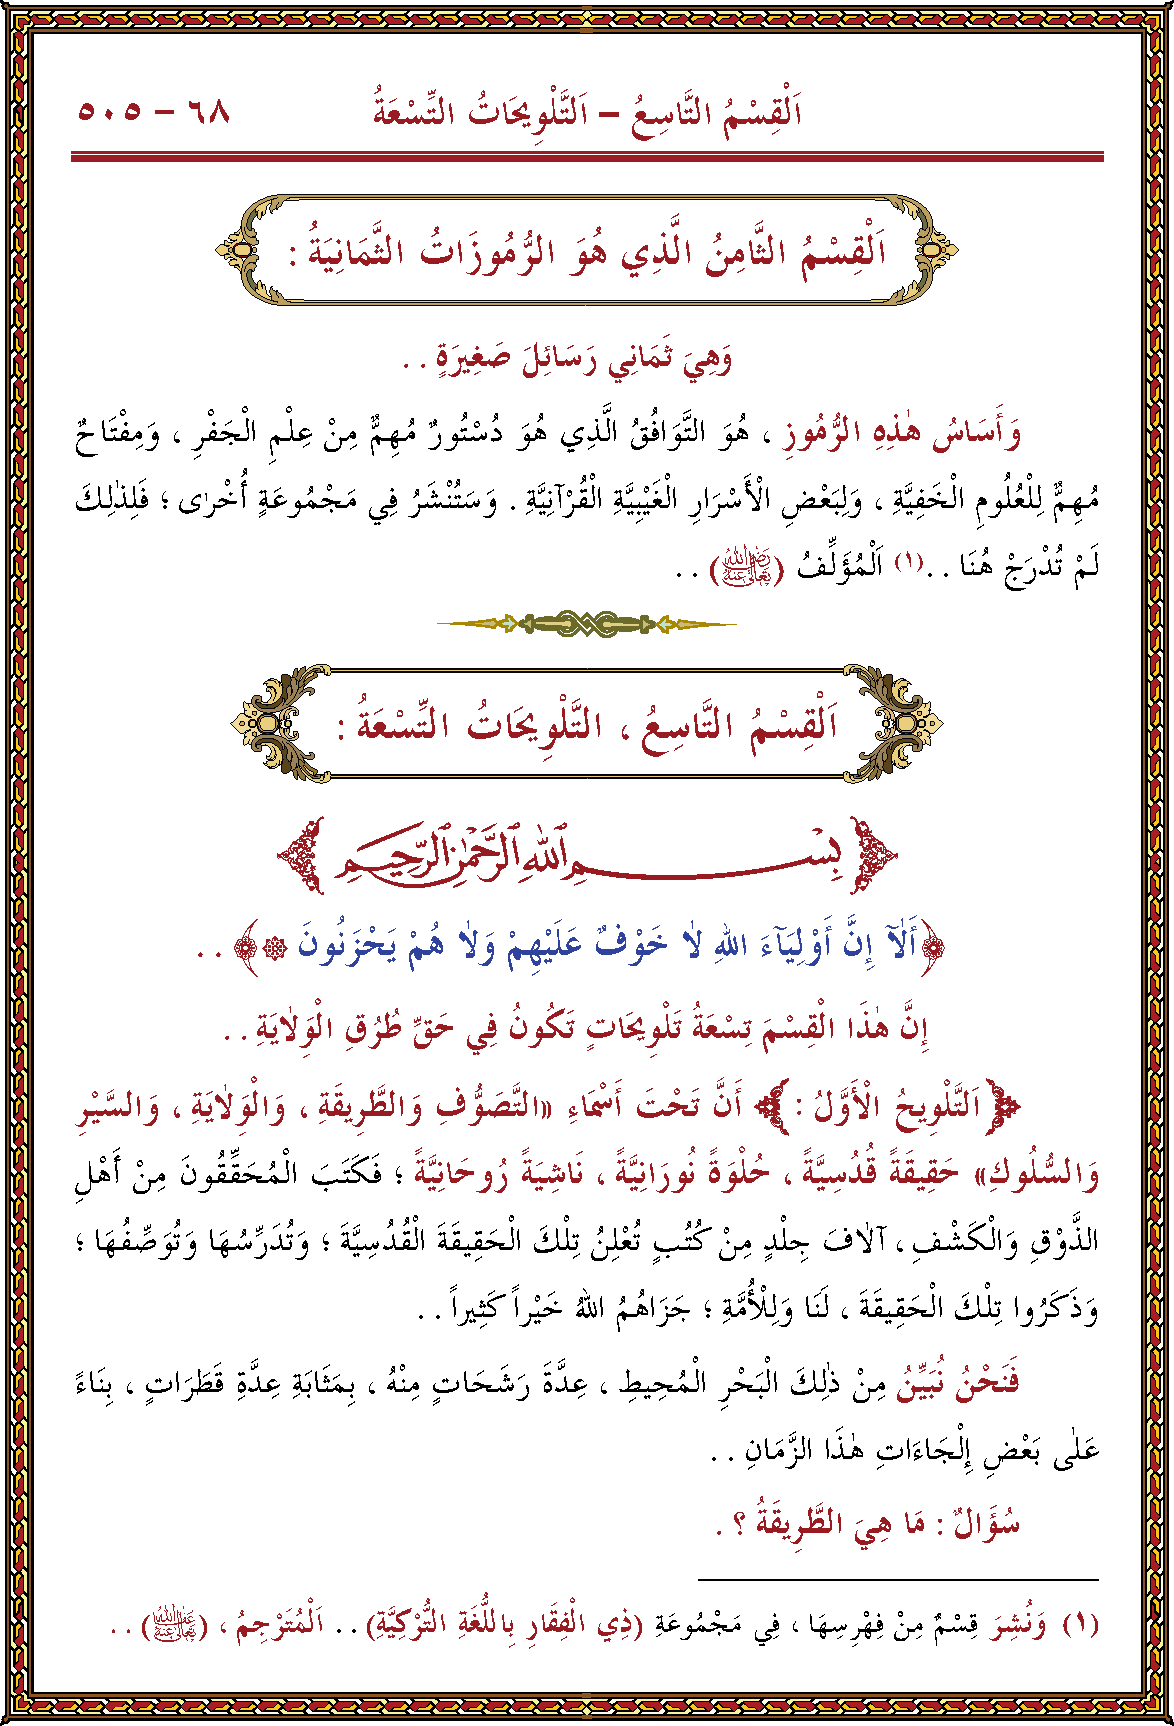 اَلْقِسْمُ التَّاسِعُ – اَلتَّلْوِيحَاتُ التِّسْعَةُ ٦٨ – ٥٠٥
اَلْقِسْمُ الثَّامِنُ الَّذِي هُوَ الرُّمُوزَاتُ الثَّمَانِيَةُ :
وَهِيَ ثَمَانِي رَسَائِلَ صَغِيرَةٍ . .
وَأَسَاسُ هٰذِهِ الرُّمُوزِ ، هُوَ التَّوَافُقُ الَّذِي هُوَ دُسْتُورٌ مُهِمٌّ مِنْ عِلْمِ الْجَفْرِ ، وَمِفْتَاحٌ
مُهِمٌّ لِلْعُلُومِ الْخَفِيَّةِ ، وَلِبَعْضِ الْأَسْرَارِ الْغَيْبِيَّةِ الْقُرْآنِيَّةِ . وَسَتُنْشَرُ فِي مَجْمُوعَةٍ أُخْرٰى ؛ فَلِذٰلِكَ
لَمْ تُدْرَجْ هُنَا . .(١) اَلْمُؤَلِّفُ (رضي الله تعالى عنه) . .
اَلْقِسْمُ التَّاسِعُ ، التَّلْوِيحَاتُ التِّسْعَةُ :
بِسْمِ اللهِ الرَّحْمٰنِ الرَّحِيمِ
﴿أَلَٓا إِنَّ أَوْلِيَٓاءَ اللهِ لَا خَوْفٌ عَلَيْهِمْ وَلَا هُمْ يَحْزَنُونَ ۞﴾ . .
إِنَّ هٰذَا الْقِسْمَ تِسْعَةُ تَلْوِيحَاتٍ تَكُونُ فِي حَقِّ طُرُقِ الْوَلَايَةِ . .
﴿اَلتَّلْوِيحُ الْأَوَّلُ : ﴾ أَنَّ تَحْتَ أَسْمَاءِ «التَّصَوُّفِ وَالطَّرِيقَةِ ، وَالْوَلَايَةِ ، وَالسَّيْرِ
وَالسُّلُوكِ» حَقِيقَةً قُدُسِيَّةً ، حُلْوَةً نُورَانِيَّةً ، نَاشِيَةً رُوحَانِيَّةً ؛ فَكَتَبَ الْمُحَقِّقُونَ مِنْ أَهْلِ
الذَّوْقِ وَالْكَشْفِ ، آلَافَ جِلْدٍ مِنْ كُتُبٍ تُعْلِنُ تِلْكَ الْحَقِيقَةَ الْقُدُسِيَّةَ ؛ وَتُدَرِّسُهَا وَتُوَصِّفُهَا ؛
وَذَكَرُوا تِلْكَ الْحَقِيقَةَ ، لَنَا وَلِلْأُمَّةِ ؛ جَزَاهُمُ اللهُ خَيْراً كَثِيراً . .
فَنَحْنُ نُبَيِّنُ مِنْ ذٰلِكَ الْبَحْرِ الْمُحِيطِ ، عِدَّةَ رَشَحَاتٍ مِنْهُ ، بِمَثَابَةِ عِدَّةِ قَطَرَاتٍ ، بِنَاءً
عَلٰى بَعْضِ إِلْجَاءَاتِ هٰذَا الزَّمَانِ . .
سُؤَالٌ : مَا هِيَ الطَّرِيقَةُ ؟ .
(١) وَنُشِرَ قِسْمٌ مِنْ فِهْرِسِهَا ، فِي مَجْمُوعَةِ (ذِي الْفِقَارِ بِاللُّغَةِ التُّرْكِيَّةِ) . . اَلْمُتَرْجِمُ ، (عفا الله عنه) . .